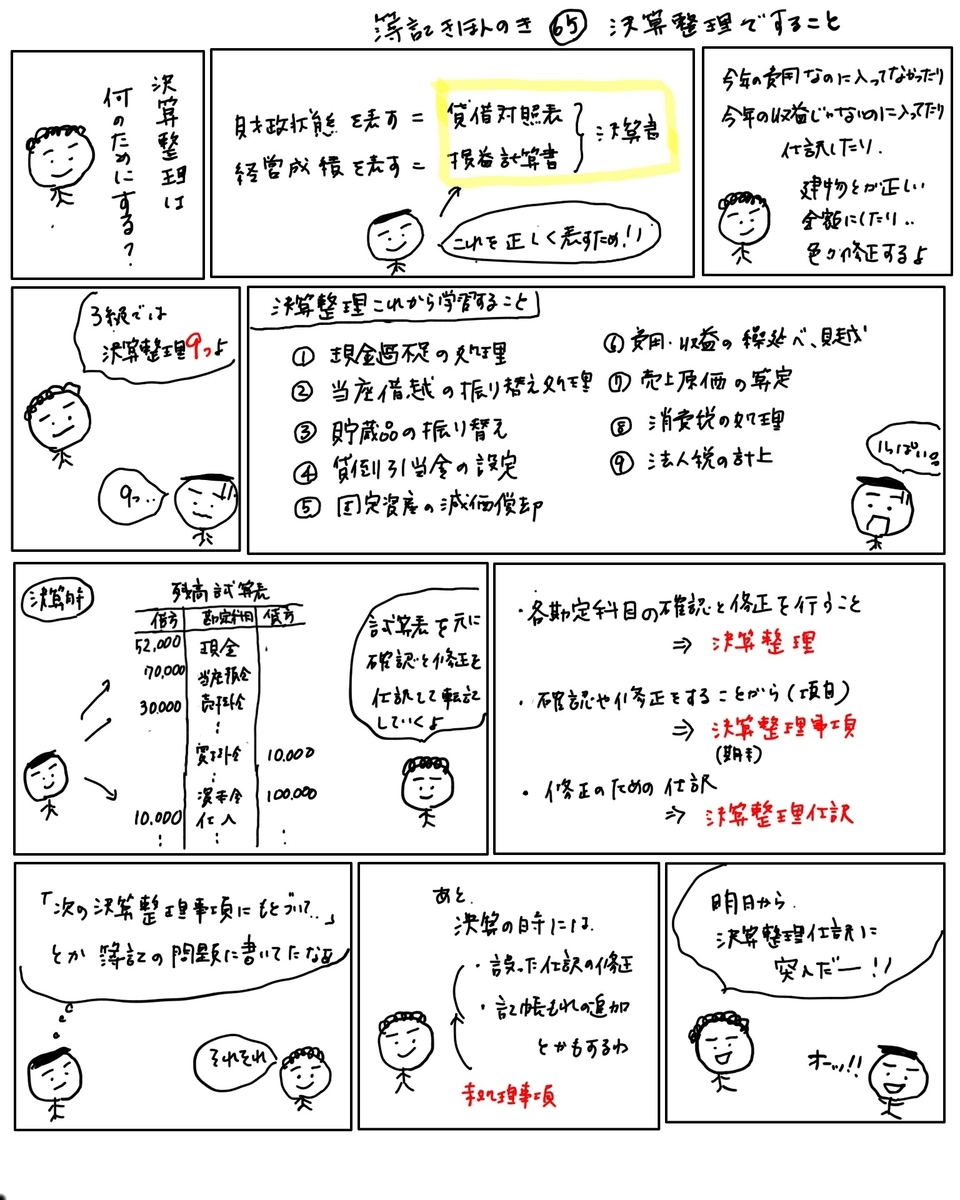 簿記きほんのき 65 決算整理ですること
決算整理は
何のためにする?
財政状態を表す = 貸借対照表
経営成績を表す = 損益計算書
決算書
これを正しく表すため!!
今年の費用なのに入ってなかったり
今年の収益じゃないのに入ってたり
仕訳したり.
建物とか正しい
金額にしたり..
色々修正するよ
3級では
決算整理9つよ
9つ...
決算整理これから学習すること
① 現金過不足の処理
② 当座借越の振り替え処理
③ 貯蔵品の振り替え
④ 貸倒引当金の設定
⑤ 固定資産の減価償却
⑥ 費用・収益の繰延べ、見越
⑦ 売上原価の算定
⑧ 消費税の処理
⑨ 法人税の計上
いっぱい。。
決算前
残高試算表
借方 勘定科目 貸方
52,000 現金
70,000 当座預金
30,000 売掛金
⋮
買掛金 10.000
⋮
資本金 100,000
10.000 仕入
⋮ ⋮ ⋮
試算表を元に
確認と修正を
仕訳して転記
していくよ
・各勘定科目の確認と修正を行うこと
⇒ 決算整理
・確認や修正をすることがら(項目)
⇒ 決算整理事項
(期末)
・修正のための仕訳
⇒ 決算整理仕訳
「次の決算整理事項にもとづいて..」
とか簿記の問題に書いてたなぁ
それそれ
あと.
決算の時には.
・誤った仕訳の修正
・記帳もれの追加
とかもするわ
未処理事項
明日から.
決算整理仕訳に
突入だー!!
オーッ!!